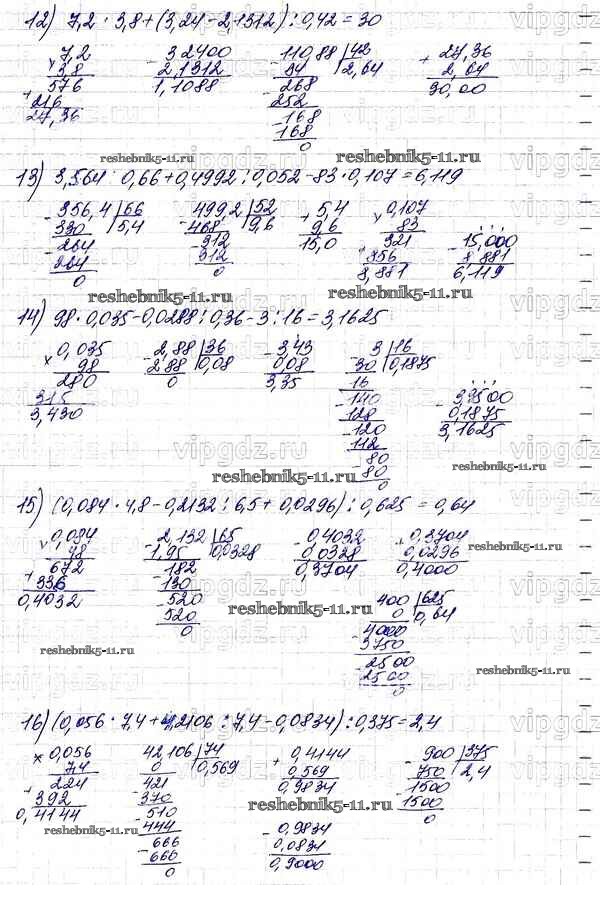 12) 7,2 · 3,8 + (3,24 - 2,1312) : 0,42 = 30
7,2 32400 110,88 42 27,36
3,8 2,1312 84 2,64 2,64
576 1,1088 268 30,00
216 252
27,36 168
168
0
reshebnik5-11.ru reshebnik5-11.ru
13) 3,564 : 0,66 + 0,4992 : 0,052 - 83 · 0,107 = 6,119
356,4 66 499,2 52 5,4 0,107
330 5,4 468 9,6 9,6 83 15,000
264 312 15,0 321 8,881
264 312 856 6,119
0 0 8,881
reshebnik5-11.ru reshebnik5-11.ru
14) 98 · 0,035 - 0,0288 : 0,36 - 3 : 16 = 3,1625
0,035 2,88 36 3,43 3 16
98 2,88 0,08 0,08 30 0,1875
280 0 3,35 16
315 140 3,3500
3,430 128 0,1875
120 3,1625
112
80
80
0
reshebnik5-11.ru reshebnik5-11.ru
15) (0,084 · 4,8 - 0,2132 : 6,5 + 0,0296) : 0,625 = 0,64
0,084 2,132 65 0,4032 0,3704
48 1,95 0,0328 0,0328 0,0296
672 182 0,3704 0,4000
336 130
0,4032 520 400 625
520 0 0,64
0 4000
3750
2500
2500
0
reshebnik5-11.ru
reshebnik5-11.ru
reshebnik5-11.ru
reshebnik5-11.ru
16) (0,056 · 7,4 + 4,2106 : 7,4 - 0,0834) : 0,375 = 2,4
0,056 42,106 74 0,4144 900 375
74 0 0,569 0,569 750 2,4
224 421 0,9834 1500
392 370 1500
0,4144 510 0,9834 0
444 0,0834
666 0,9000
666
0
reshebnik5-11.ru reshebnik5-11.ru reshebnik5-11.ru
vipgdz.ru